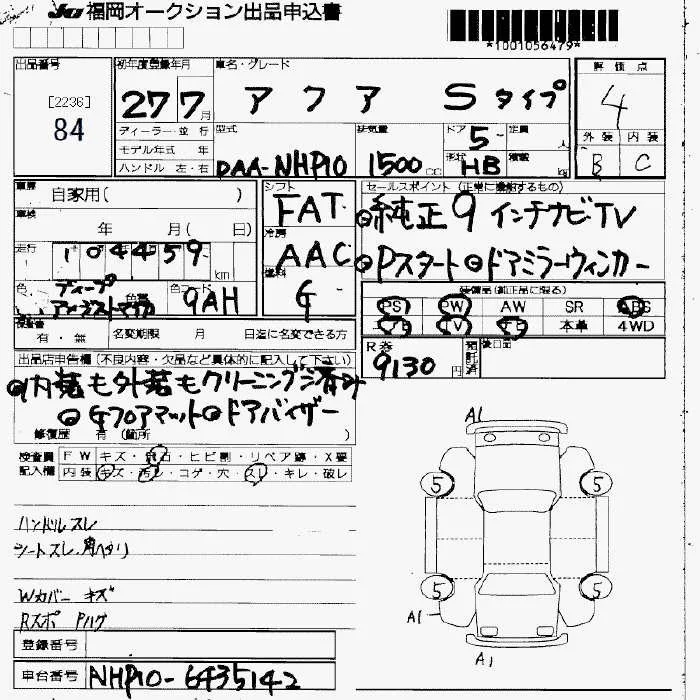 JU 福岡オークション出品申込書
*1001056479*
出品番号
[2236]
84
初年度登録年月
27 7月
車名・グレード
アクア Sタイプ
評価点
4
外装 内装
B C
ディーラー・並行
モデル年式 年
ハンドル 左・右
型式
DAA-NHP10
排気量
1500cc
ドア 5
形状 HB
定員 人
積載 kg
車歴
自家用( )
車検
年 月( 日)
走行
104459 km
色 ディープアメジストマイカ
色替
色コード 9AH
シフト
FAT
冷房
AAC
燃料
G
セールスポイント(正常に機能するもの)
◎純正9インチナビTV
◎Pスタート◎ドアミラーウィンカー
装備品(純正品に限る)
PS PW AW SR ABS
エアB TV ナビ 本革 4WD
有・無
名変期限 月 日迄に名変できる方
R券
9130円
預託済
後日品
出品店申告欄(不良内容・欠品など具体的に記入して下さい)
◎内装も外装もクリーニング済み
◎Gフロアマット◎ドアバイザー
修復歴 有(箇所 )
検査員記入欄
FW キズ・飛石・ヒビ割・リペア跡・X要
内装 キズ・汚レ・コゲ・穴・スレ・キレ・破レ
ハンドルスレ
シートスレ.角ヘタリ
Wカバー キズ
Rスポ Pハゲ
登録番号
車台番号 NHP10-6435142
A1
5 5
5 5
A1
A1